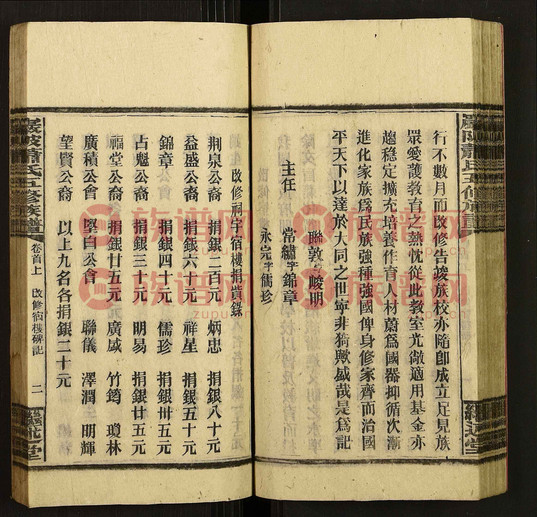 行不數月而改修告竣族校亦隨卽成立足見族
眾愛護教育之熱忱從此教室光敞適用基金亦
趨穩定擴充培養作育人材蔚爲國器抑循次漸
進化家族爲民族強種強國俾身修家齊而治國
平天下以達於大同之世寧非猗歟盛哉是爲記
聯敦字峻明
主任 常繡字錦章
永完字儒珍
改修祠宇宿樓捐貲錄
荆泉公裔 捐銀二百元 炳忠 捐銀八十元
益盛公裔 捐銀六十元 祥星 捐銀五十元
錦章公裔 捐銀四十元 儒珍 捐銀卅五元
占魁公裔 捐銀三十元 明易 捐銀廿五元
福堂公裔 捐銀廿五元 廣咸 竹筠 瓊林
廣積公會 堅白公會 聯儀 澤潤 明輝
望賢公裔 以上九名各捐銀二十元
巖陂蕭氏五修族譜 卷首上 改修宿樓碑記 二 繼述堂
巖陂蕭氏五修族譜 繼述堂
族谱网
zupu